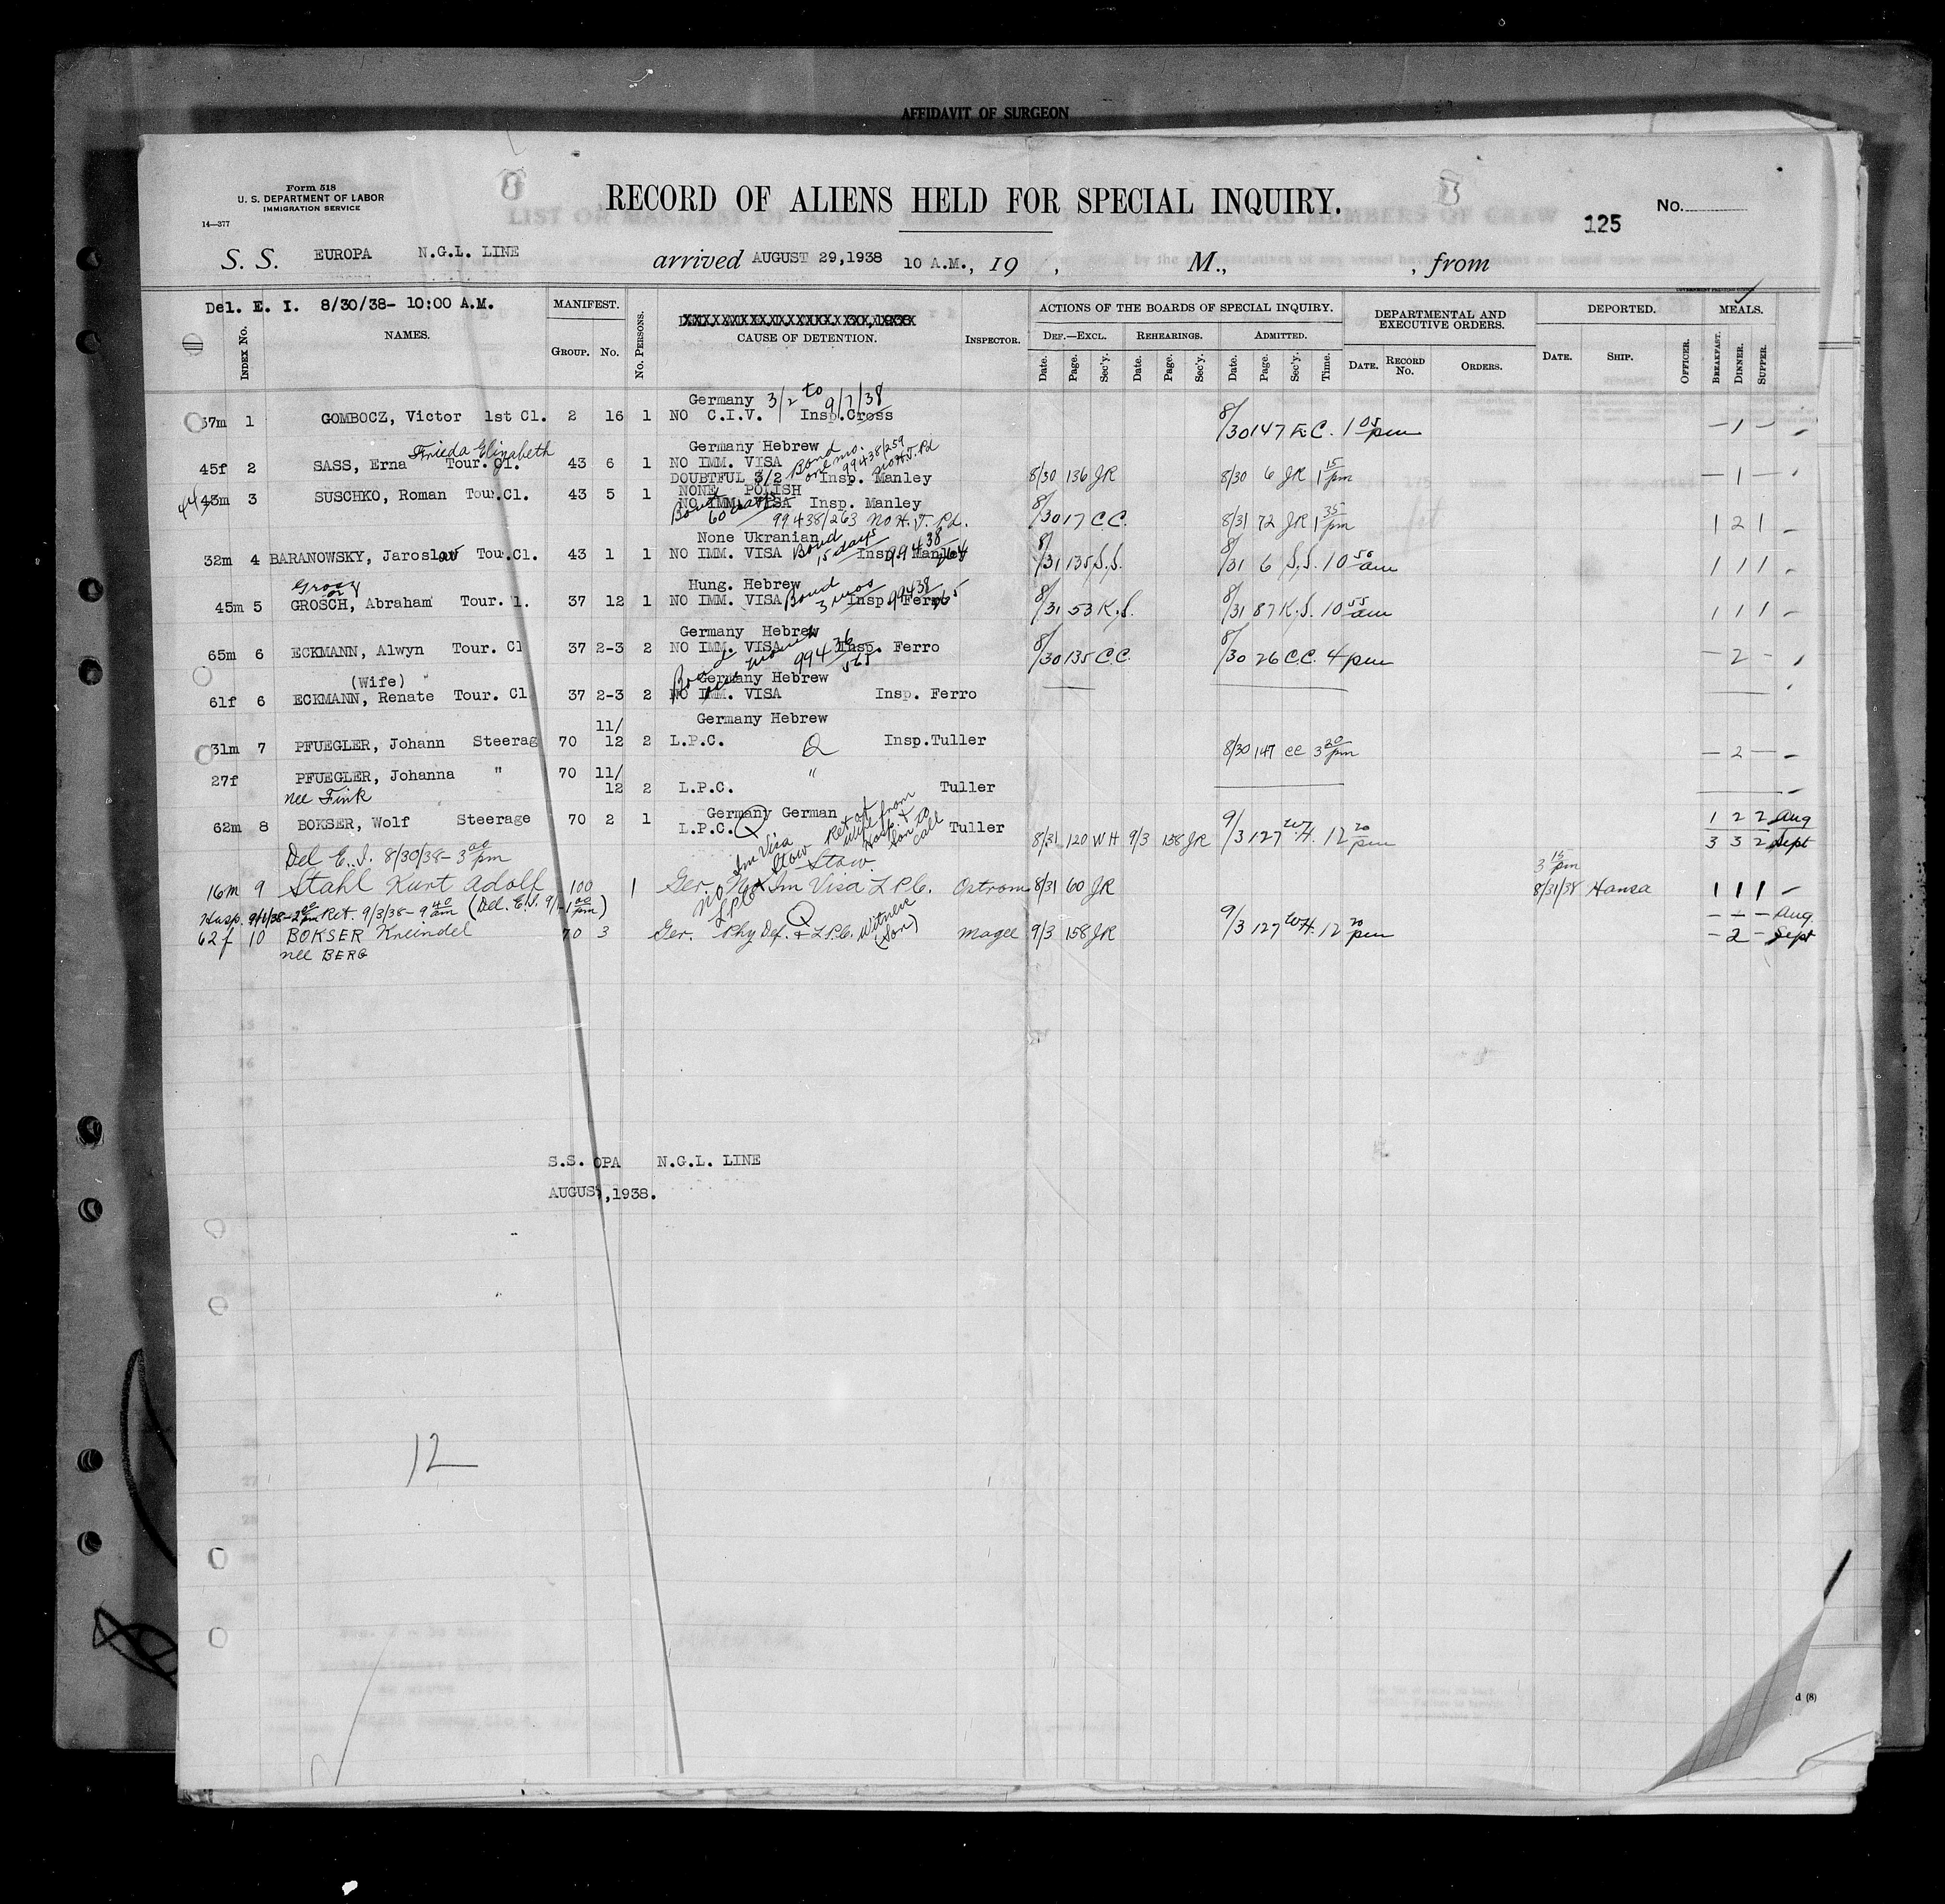 AFFIDAVIT OF SURGEON
Form 518
U. S. DEPARTMENT OF LABOR
IMMIGRATION SERVICE
14—377
RECORD OF ALIENS HELD FOR SPECIAL INQUIRY.
125 No.
S. S. EUROPA N.G.L. LINE arrived AUGUST 29,1938 10 A.M., 19 , M., , from
Del. E. I. 8/30/38- 10:00 A.M.
INDEX No. NAMES. MANIFEST. GROUP. No. No. PERSONS. CAUSE OF DETENTION. INSPECTOR.
ACTIONS OF THE BOARDS OF SPECIAL INQUIRY. DEPARTMENTAL AND EXECUTIVE ORDERS. DEPORTED. MEALS.
DEF.—EXCL. REHEARINGS. ADMITTED.
Date. Page. Sec'y. Date. Page. Sec'y. Date. Page. Sec'y. Time. DATE. RECORD No. ORDERS. DATE. SHIP. OFFICER. BREAKFAST. DINNER. SUPPER.
Germany 3/2 to 9/7/38
37m 1 GOMBOCZ, Victor 1st Cl. 2 16 1 NO C.I.V. Insp.Cross 8/30 147 F.C. 1 05 pm — 1 —
Frieda Elizabeth Germany Hebrew
45f 2 SASS, Erna Tour. Cl. 43 6 1 NO IMM. VISA Bond one mo. 99438/259 No H.T. Pd
DOUBTFUL 3/2 Insp. Manley 8/30 136 JR 8/30 6 JR 1 15 pm — 1 —
NONE POLISH
44 43m 3 SUSCHKO, Roman Tou.Cl. 43 5 1 NO IMM. VISA Insp. Manley
Bond 60 days 99438/263 No H.T. Pd. 8/30 17 C.C. 8/31 72 JR 1 35 pm 1 2 1
None Ukranian
32m 4 BARANOWSKY, Jaroslaw Tou.Cl. 43 1 1 NO IMM. VISA Bond 15 days Insp. Manley 99438/264 8/31 135 S.S. 8/31 6 S.S. 10 50 am 1 1 1
Grosz or Hung. Hebrew
45m 5 GROSCH, Abraham Tour. l. 37 12 1 NO IMM. VISA Bond 3 mos Insp. Ferro 99438/265 8/31 53 K.S. 8/31 87 K.S. 10 55 am 1 1 1
Germany Hebrew
65m 6 ECKMANN, Alwyn Tour. Cl 37 2-3 2 NO IMM. VISA Insp. Ferro 99436/565 8/30 135 C.C. 8/30 26 C.C. 4 pm — 2 —
(Wife) Germany Hebrew
61f 6 ECKMANN, Renate Tour. Cl 37 2-3 2 NO IMM. VISA Insp. Ferro
Germany Hebrew
31m 7 PFUEGLER, Johann Steerag 70 11/12 2 L.P.C. Q Insp.Tuller 8/30 147 CC 3 20 pm — 2 —
27f PFUEGLER, Johanna " 70 11/12 2 L.P.C. " Tuller
nee Fink
Germany German
62m 8 BOKSER, Wolf Steerage 70 2 1 L.P.C. Q Tuller 8/31 120 WH 9/3 158 JR 9/3 127 W.H. 12 20 pm 1 2 2 Aug
Im Visa Stow Ret of wife from Hosp. + son to call 3 3 2 Sept
Del E.I. 8/30/38- 3 00 pm
16m 9 Stahl Kurt Adolf 100 1 Ger. No Im Visa L.P.C. Ostrom 8/31 60 JR 3 15 pm 8/31/38 Hansa 1 1 1
Hosp. 9/1/38- 2 00 pm Ret. 9/3/38- 9 40 am (Del. E.I. 9/1- 1 00 pm) — — — Aug.
62f 10 BOKSER Kreindel 70 3 Ger. Phy Def. + L.P.C. Q Witness (Son) Magee 9/3 158 JR 9/3 127 W.H. 12 20 pm — 2 — Sept
nee BERG
S.S. OPA N.G.L. LINE
AUGUS ,1938.
12
d (8)